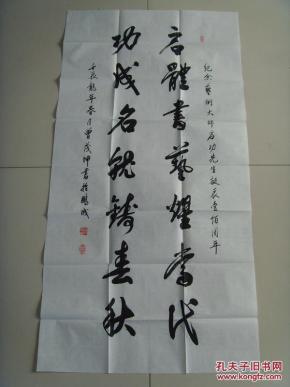 纪念藝術大师启功先生诞辰壹佰周年
启體書藝耀當代
功成名就鑄春秋
壬辰龍年春月曾茂坤書於鵬城
孔夫子旧书网